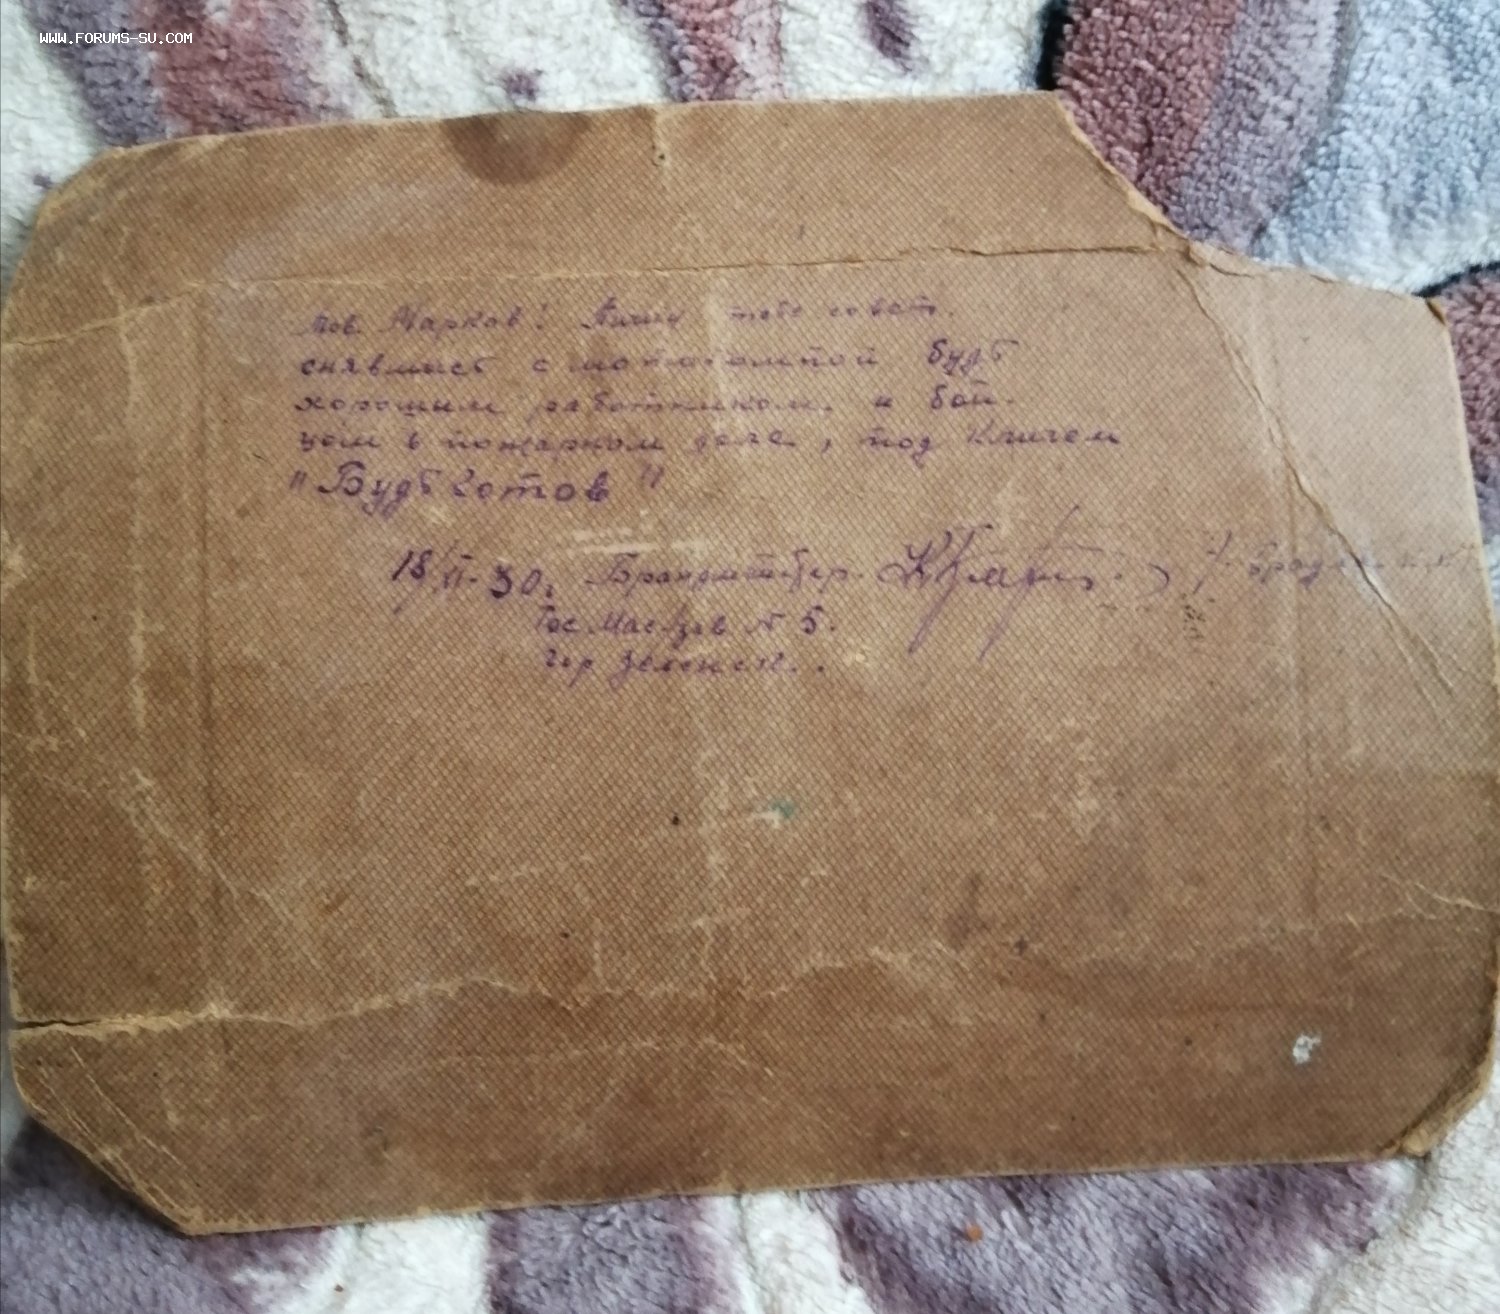 WWW.FORUMS-SU.COM
Тов. Марков! Пишу тебе совет.
снявшись с мотопомпой будь
хорошим работником, и бой-
цом в пожарном деле, под Кличем
"Будь Готов"
18/VI-30г. Брандмейстер.
Гос Мас/зав № 5.
гор